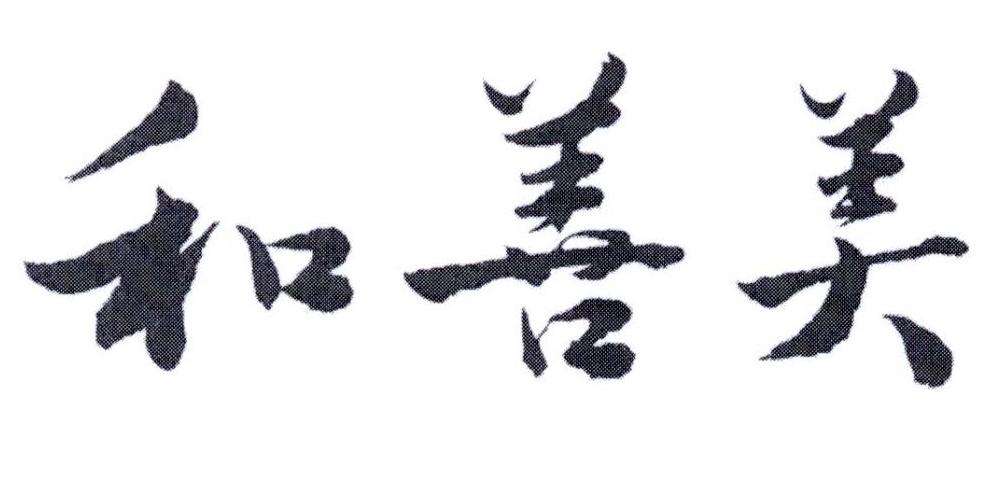 和善美